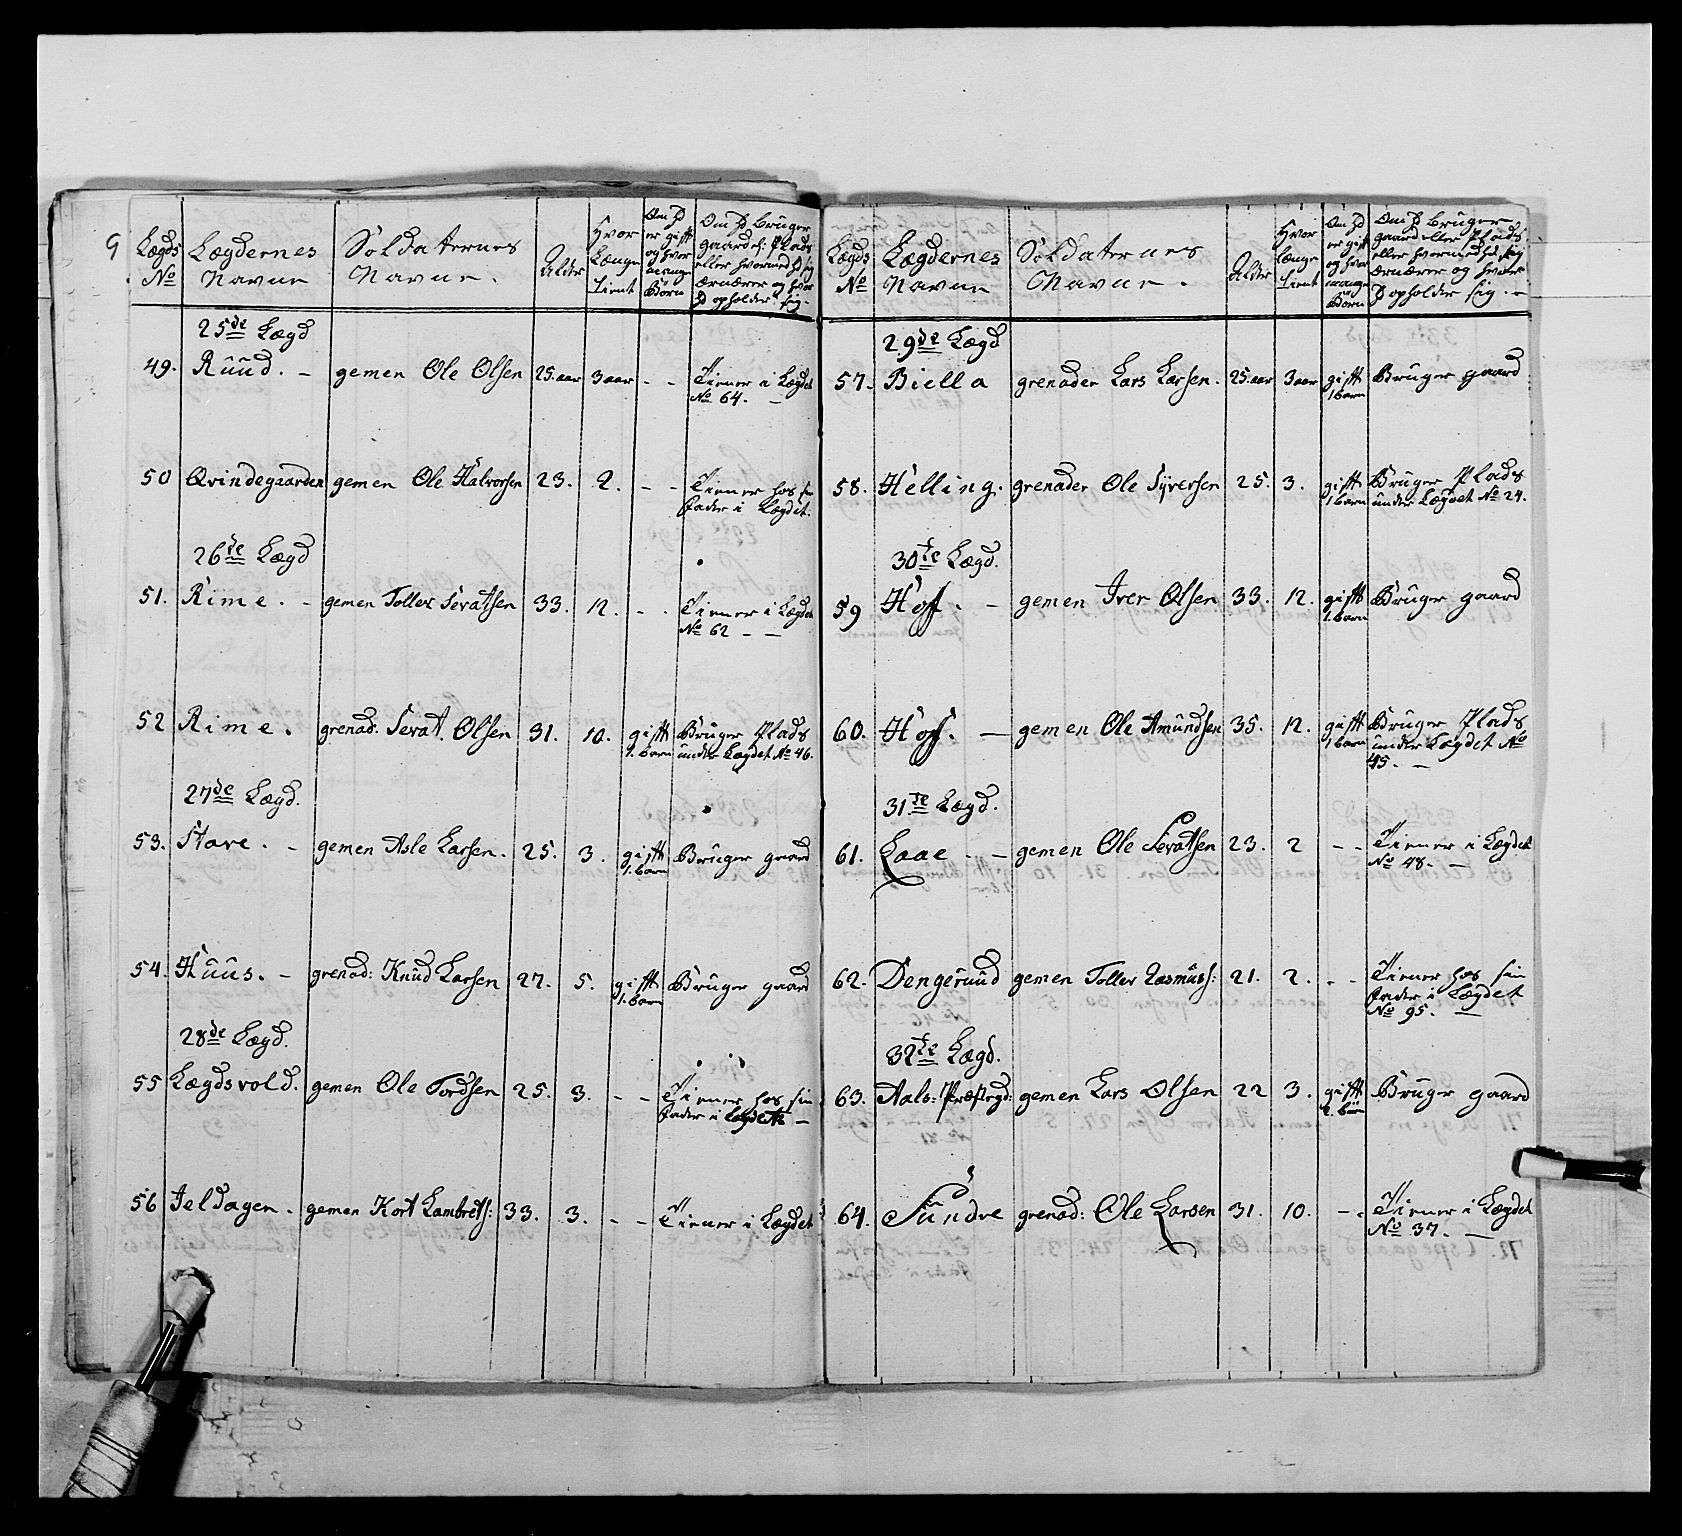 9
Lægds No | Lægdernes Navne | Soldaternes Navne. | Alder | Hvor Længe tient | Om d er gift og hvor mange Børn | Om d bruger gaard el: Plads eller hvormed d sig ernærer og hvor d opholder sig.
25de Lægd
49. Ruud. - gemen Ole Olsen 25. aar 3 aar - - Tiener i Lægdet
No 64. -
50 Qvindegaarden gemen Ole Halvorsen 23. 2. - - Tiener hos sin
fader i Lægdet.
26de Lægd
51. Rime. - gemen Toller Sevatsen 33. 12. - - Tiener i Lægdet
No 62 - -
52 Rime. grenad: Sevat Olsen 31. 10. gift Bruger Plads
1. barn under Lægdet No 46.
27de Lægd.
53. Stave. - gemen Asle Larsen. 25. 3. gift Bruger gaard
1. barn
54. Huus. - grenad: Knud Larsen 27. 5. gift Bruger gaard
1. barn
28de Lægd.
55 Lægdsvold. gemen Ole Tordsen 25. 3. - - Tiener hos sin
fader i Lægdet -
56 Jeldagen. gemen Kort Lambrets: 33. 3. - - Tiener i Lægdet
Lægds No | Lægdernes Navne | Soldaternes Navne. | Alder | Hvor længe tient | Om d er gift og hvor mange Børn | Om d bruger gaard eller Plads eller hvormed d sig ernærer og hvor d opholder sig. -
29de Lægd
57. Biella grenader Lars Larsen. 25. aar 3 aar gift Bruger gaard
1 barn
58. Helling. grenader Ole Syversen 25. 3. gift Bruger Plads
1 barn under Lægdet No 24.
30te Lægd.
59 Hoff. - gemen Iver Olsen 33. 12. gift Bruger gaard
1. barn
60. Hoff. - gemen Ole Amundsen 35. 12. gift Bruger Plads
1 barn under Lægdet No
45. -
31te Lægd.
61. Laae. - gemen Ole Sevatsen 23. 2 - - Tiener i Lægdet
No 48. -
62. Dengerud gemen Toller Rasmuss: 21. 2. - - Tiener hos sin
fader i Lægdet
No 95. -
32te Lægd.
63. Aals: Præstegd: gemen Lars Olsen 22 3. gift Bruger gaard
2. børn
64. Sundre grenad: Ole Larsen 31. 10. - - Tiener i Lægdet
No 37. -